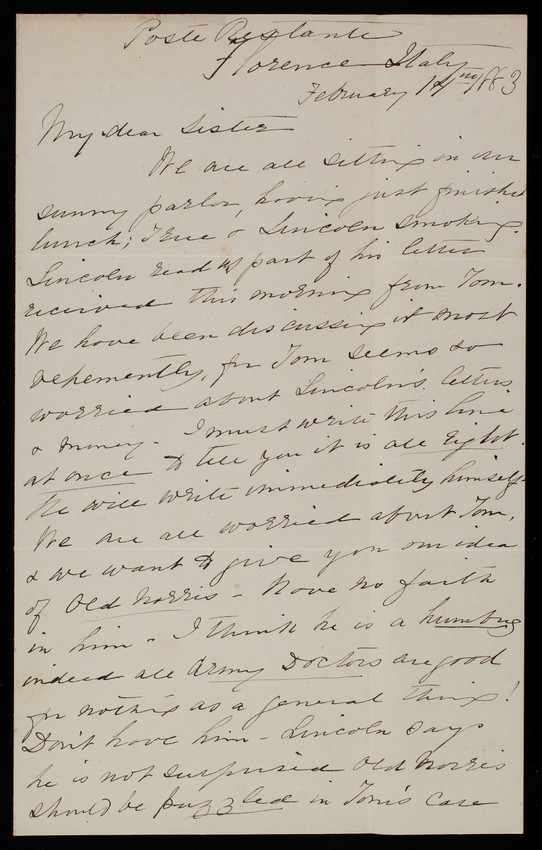 Poste Restante
Florence Italy
February 14th 1883
My dear Sister
We are all sitting in our
sunny parlor, having just finished
lunch; True & Lincoln smoking.
Lincoln read us part of his letter
received this morning from Tom.
We have been discussing it most
vehemently, for Tom seems so
worried about Lincoln's letters
& money - I must write this line
at once to tell you it is all right.
He will write immediately himself.
We are all worried about Tom,
& we want to give you our idea
of Old Norris - Have no faith
in him - I think he is a humbug
indeed all Army Doctors are good
for nothing as a general thing!
Don't have him - Lincoln says
he is not surprised Old Norris
should be puzzled in Tom's case